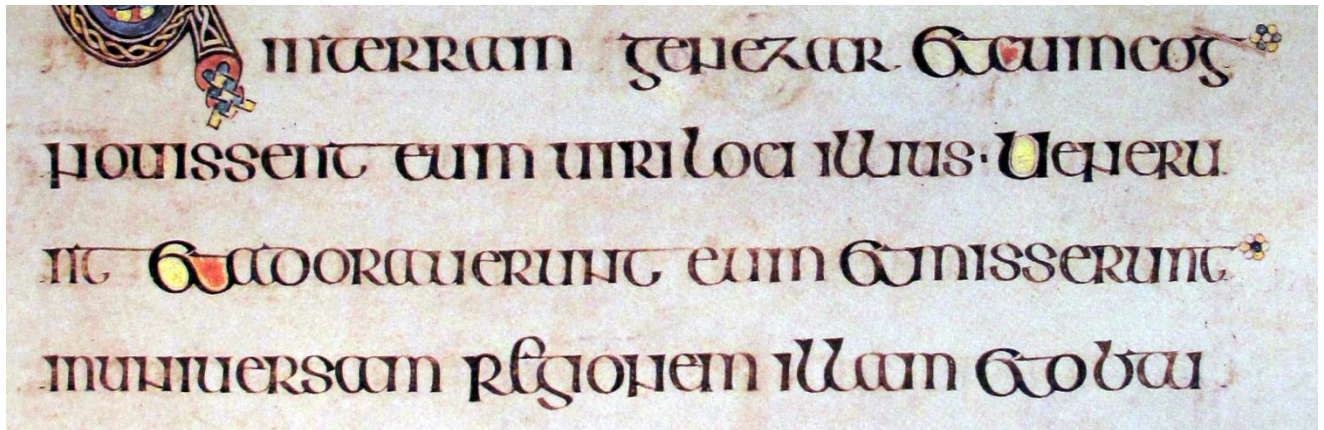 interram genezar Et cum cog
nouissent eum uiri loci illius · Ueneru
nt Et adorauerunt eum Et misserunt
inuniuersam regionem illam Et obtu